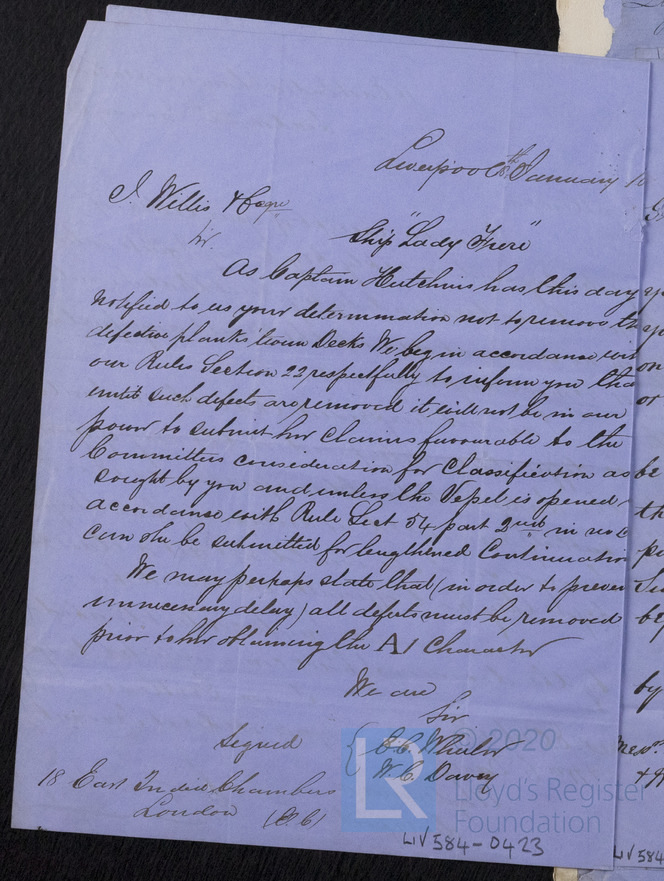 Liverpool 8th January 18
J. Willis & Co Esqre
Sir.
Ship "Lady Frere"
As Captain Hutchins has this day
notified to us your determination not to remove th
defective planks &c in Decks We beg in accordance with
our Rules Section 22 respectfully to inform you that
until such defects are removed it will not be in our
power to submit her claims favourable to the
Committees consideration for Classification as
sought by you and unless the Vessel is opened
accordance with Rule Sect 54 part 2nd in no c
can she be submitted for lengthened Continuation
We may perhaps state that (in order to preven
unnecessary delay) all defects must be removed
prior to her obtaining the A1 Character
We are
Sir
Signed
C.C. Wheeler
W. C. Davey
18 East India Chambers
London (E.C)
LIV 584-0423
LR
© 2020
Lloyd's Register
Foundation
LIV 584